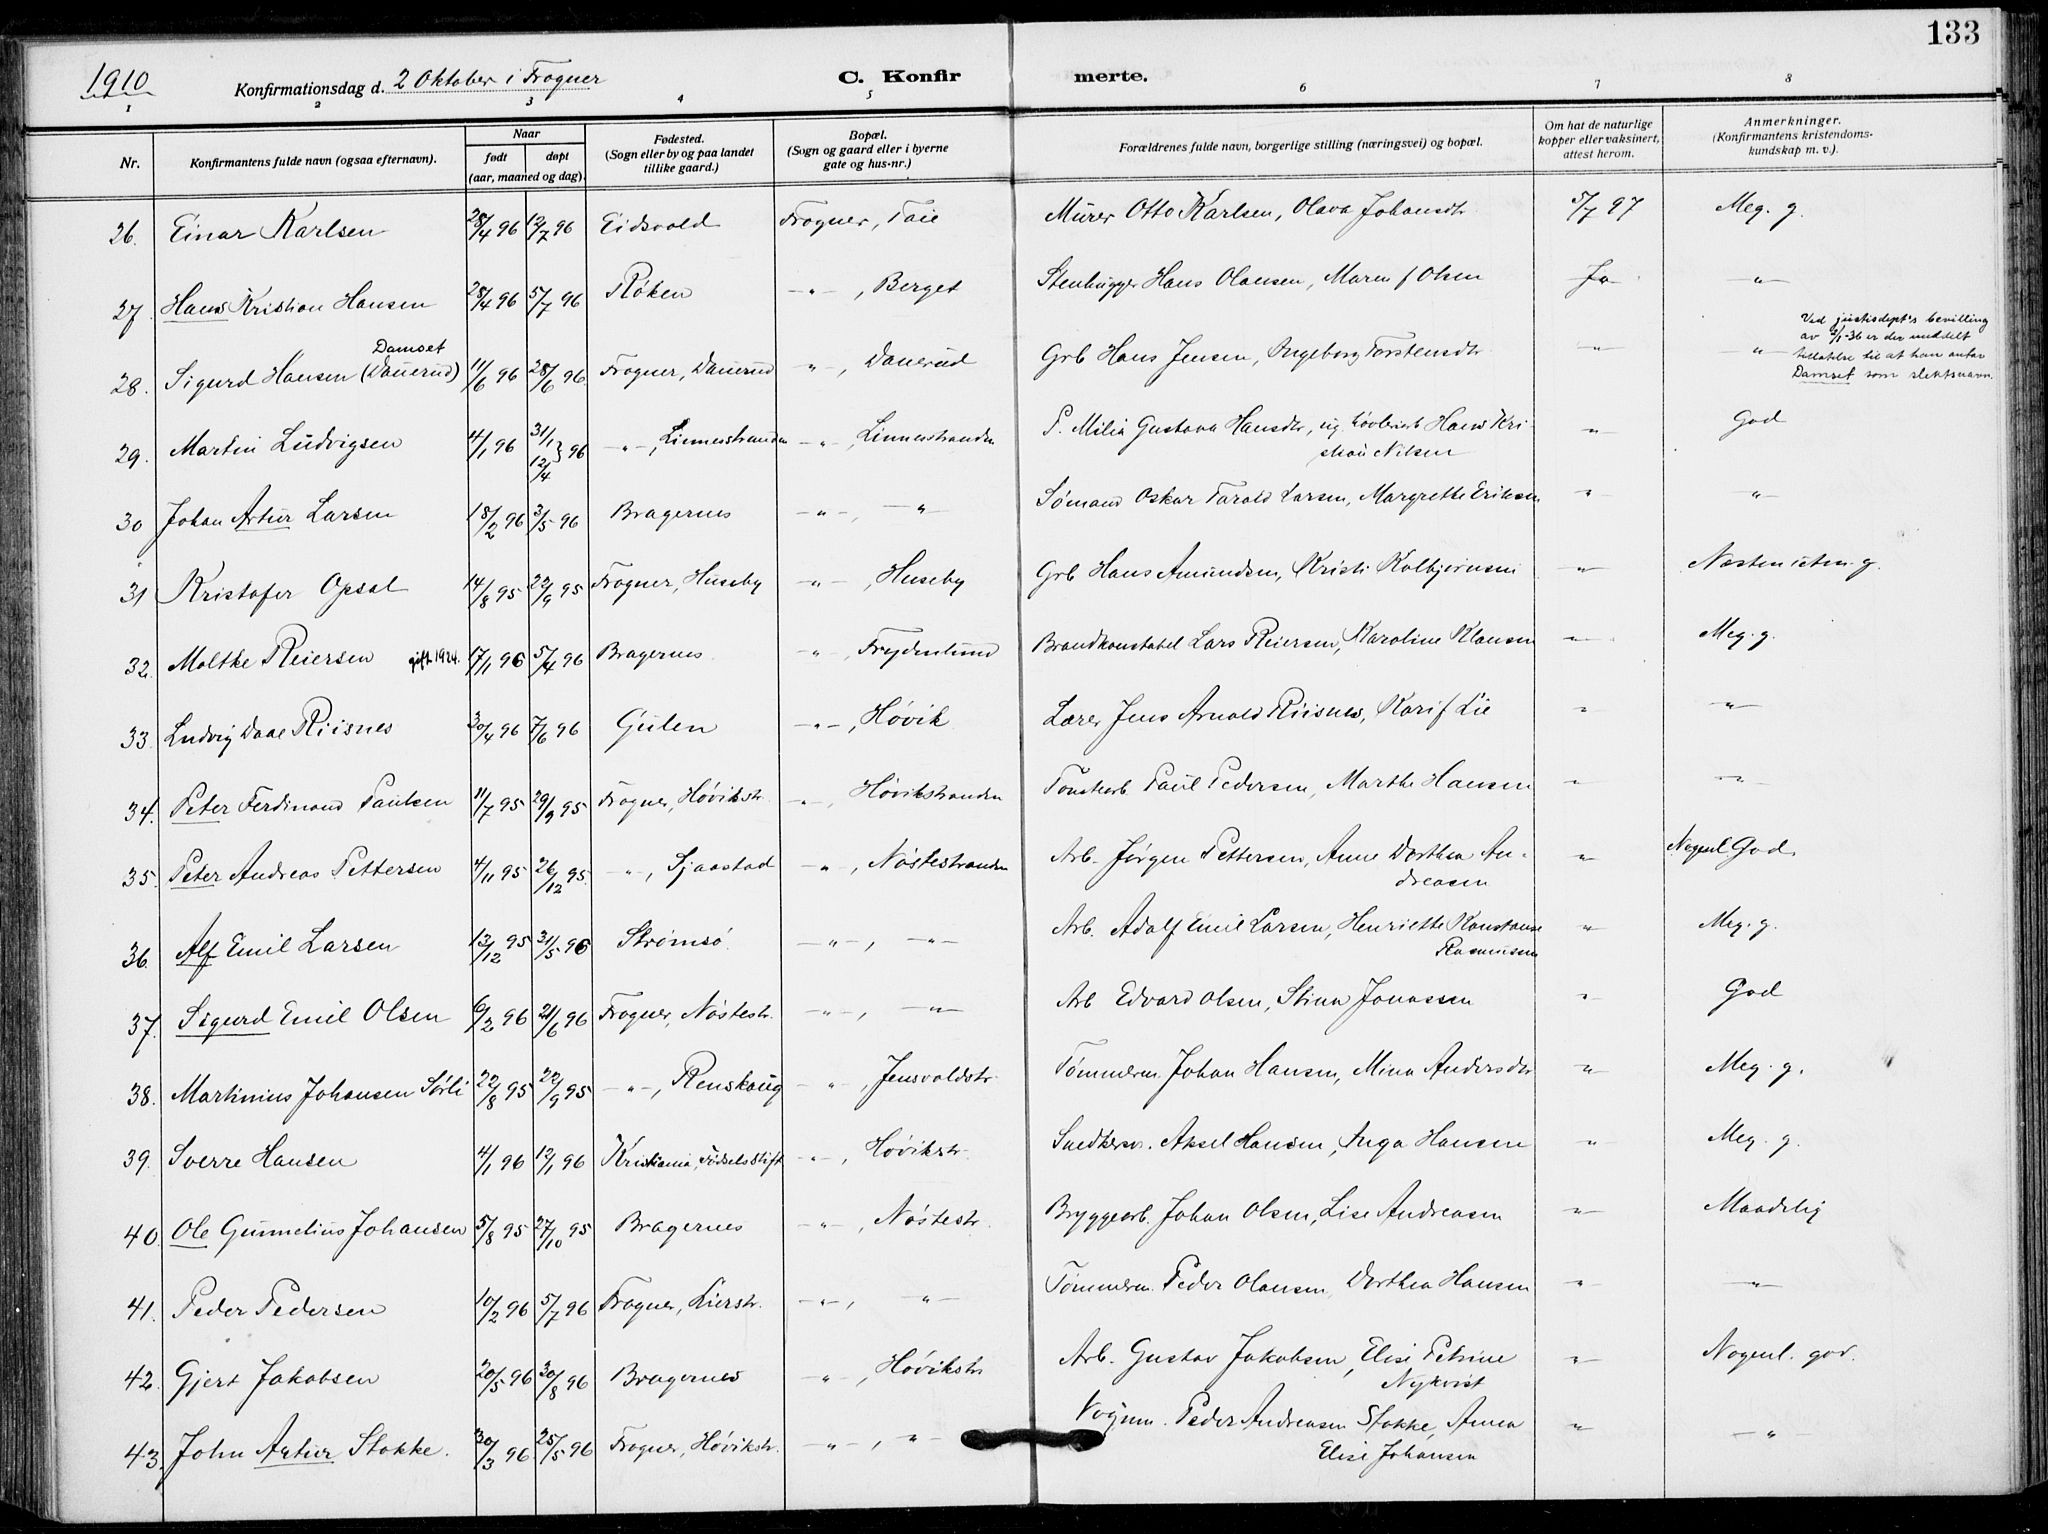 133
1910 Konfirmationsdag d. 2 Oktober i Frogner C. Konfir merte.
1 2 3 4 5 6 7 8
Nr. Konfirmantens fulde navn (ogsaa efternavn). Naar født døpt (aar, maaned og dag). Fødested. (Sogn eller by og paa landet tillike gaard.) Bopæl. (Sogn og gaard eller i byerne gate og hus-nr.) Forældrenes fulde navn, borgerlige stilling (næringsvei) og bopæl. Om hat de naturlige kopper eller vaksinert, attest herom. Anmerkninger. (Konfirmantens kristendoms-kundskap m. v.).
26. Einar Karlsen 28/4 96 12/7 96 Eidsvold Frogner, Faie Murer Otto Karlsen, Olava Johansdtr 5/7 97 Meg. g.
27. Hans Kristian Hansen 28/4 96 5/7 96 Røken -"-, Berget Stenhugger Hans Olausen, Maren f Olsen Ja "
28. Sigurd Hansen (Dauerud) Damset 11/6 96 28/6 96 Frogner, Dauerud -"-, Dauerud Grb Hans Jensen, Ingeborg Torstensdtr " "
Ved justisdept's bevilling
av 2/1-36 er der meddelt
tillatelse til at han antar
Damset som slektsnavn.
29. Martin Ludvigsen 4/1 96 31/1 12/4 } 96 -"-, Linnesstranden -"-, Linnesstranden P. Milia Gustava Hansdtr, ug. høvleriarb Hans Kri- " God
stian Nilsen
30 Johan Artur Larsen 18/2 96 3/5 96 Bragernes -"-, -"- Sømand Oskar Farald Larsen, Margrethe Eriksen " "
31 Kristofer Opsal 14/8 95 22/9 95 Frogner, Huseby -"-, Huseby Grb Hans Amundsen, Kristi Kolbjørnsen " Næsten uten g.
32. Moltke Reiersen gift 1924. 17/1 96 5/4 96 Bragernes -"-, Frydenlund Brandkonstabel Lars Reiersen, Karoline Klausen " Meg. g.
33. Ludvig Daae Riisnes 30/4 96 7/6 96 Gulen -"-, Høvik Lærer Jens Arnold Riisnes, Kari f Lie " "
34. Peter Ferdinand Paulsen 11/7 95 29/9 95 Frogner, Høvikstr. -"-, Høvikstranden Tomtearb Paul Pedersen, Marthe Hansen " "
35. Peter Andreas Pettersen 4/11 95 26/12 95. -"-, Sjaastad -"-, Nøstestranden Arb. Jørgen Pettersen, Anne Dorthea An- " Nogenl God.
dreasen
36. Alf Emil Larsen 13/12 95 31/5 96 Strømsø. -"-, -"- Arb. Adolf Emil Larsen, Henriette Konstanse " Meg. g.
Rasmussen
37. Sigurd Emil Olsen 6/2 96 21/6 96 Frogner, Nøstestr. -"-, -"- Arb Edvard Olsen, Stina Jonassen " God
38. Martinius Johansen Sørli 22/8 95 22/9 95 -"-, Renskaug -"-, Jensvoldstr. Tømmerm. Johan Hansen, Mina Andersdtr " Meg. g.
39. Sverre Hansen 4/1 96 12/1 96 Kristiania, Fødselsstift -"-, Høvikstr. Snedkersv. Aksel Hansen, Inga Hansen " Meg. g.
40. Ole Gunnelius Johansen 5/8 95 27/10 95 Bragernes -"-, Nøstestr. Bryggearb. Johan Olsen, Lise Andreasen " Maadelig
41. Peder Pedersen 10/2 96 5/7 96 Frogner, Lierstr. -"-, " Tømmerm. Peder Olausen, Dorthea Hansen " "
42. Gjert Jakobsen 20/5 96 30/8 96 Bragernes -"-, Høvikstr Arb. Gustav Jakobsen, Elise Petrine " Nogenl. god.
Nykvist
43. John Artur Stokke. 30/3 96 25/5 96 Frogner, Høvikstr. -"-, -"- Vognm. Peder Andreasen Stokke, Anna " "
Elise Johansen